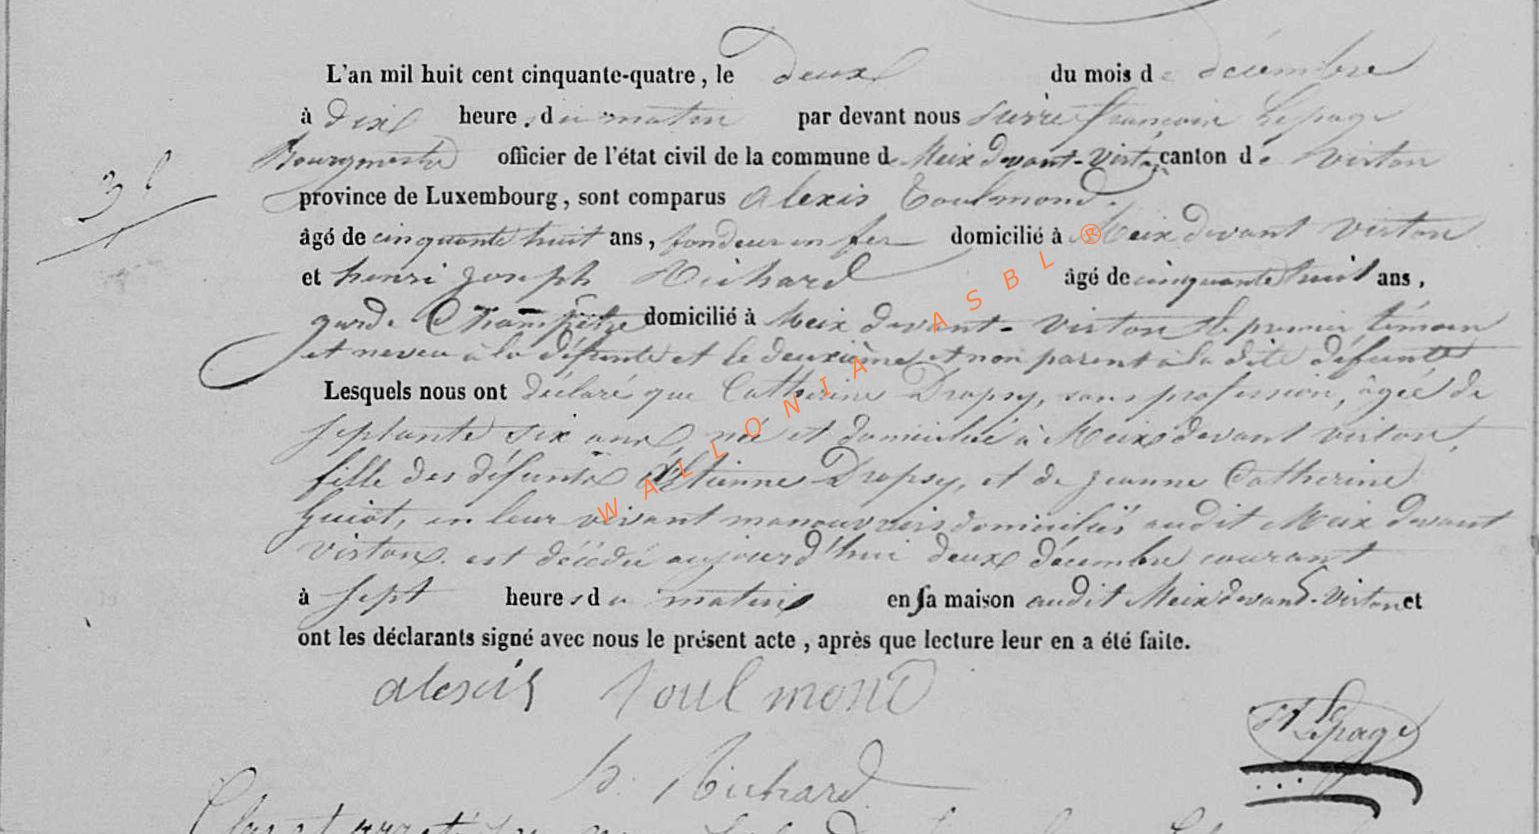 L'an mil huit cent cinquante-quatre, le deux du mois de décembre
à dix heures du matin par devant nous Pierre françois Lepage
Bourgmestre officier de l'état civil de la commune de Meix devant-Virton, canton de Virton
province de Luxembourg, sont comparus Alexis Toulmond.
31
âgé de cinquante huit ans, fondeur en fer domicilié à Meix devant Virton
et henri Joseph Richard âgé de cinquante huit ans,
garde Champêtre domicilié à Meix devant-Virton le premier témoin
est neveu à la défunte et le deuxième est non parent à la dite défunte
Lesquels nous ont déclaré que Catherine Dropsy, sans profession, âgée de
septante six ans, née et domiciliée à Meix devant virton,
fille des défunts Etienne Dropsy, et de Jeanne Catherine
Guiot, en leur vivant manouvriers domiciliés audit Meix devant
virton. est décédée aujourd'hui deux décembre courant
à sept heures du matin en sa maison audit Meix devant-Virton et
ont les déclarants signé avec nous le présent acte, après que lecture leur en a été faite.
alexis toulmond
Lepage
h. Richard
WALLONIA ASBL ®